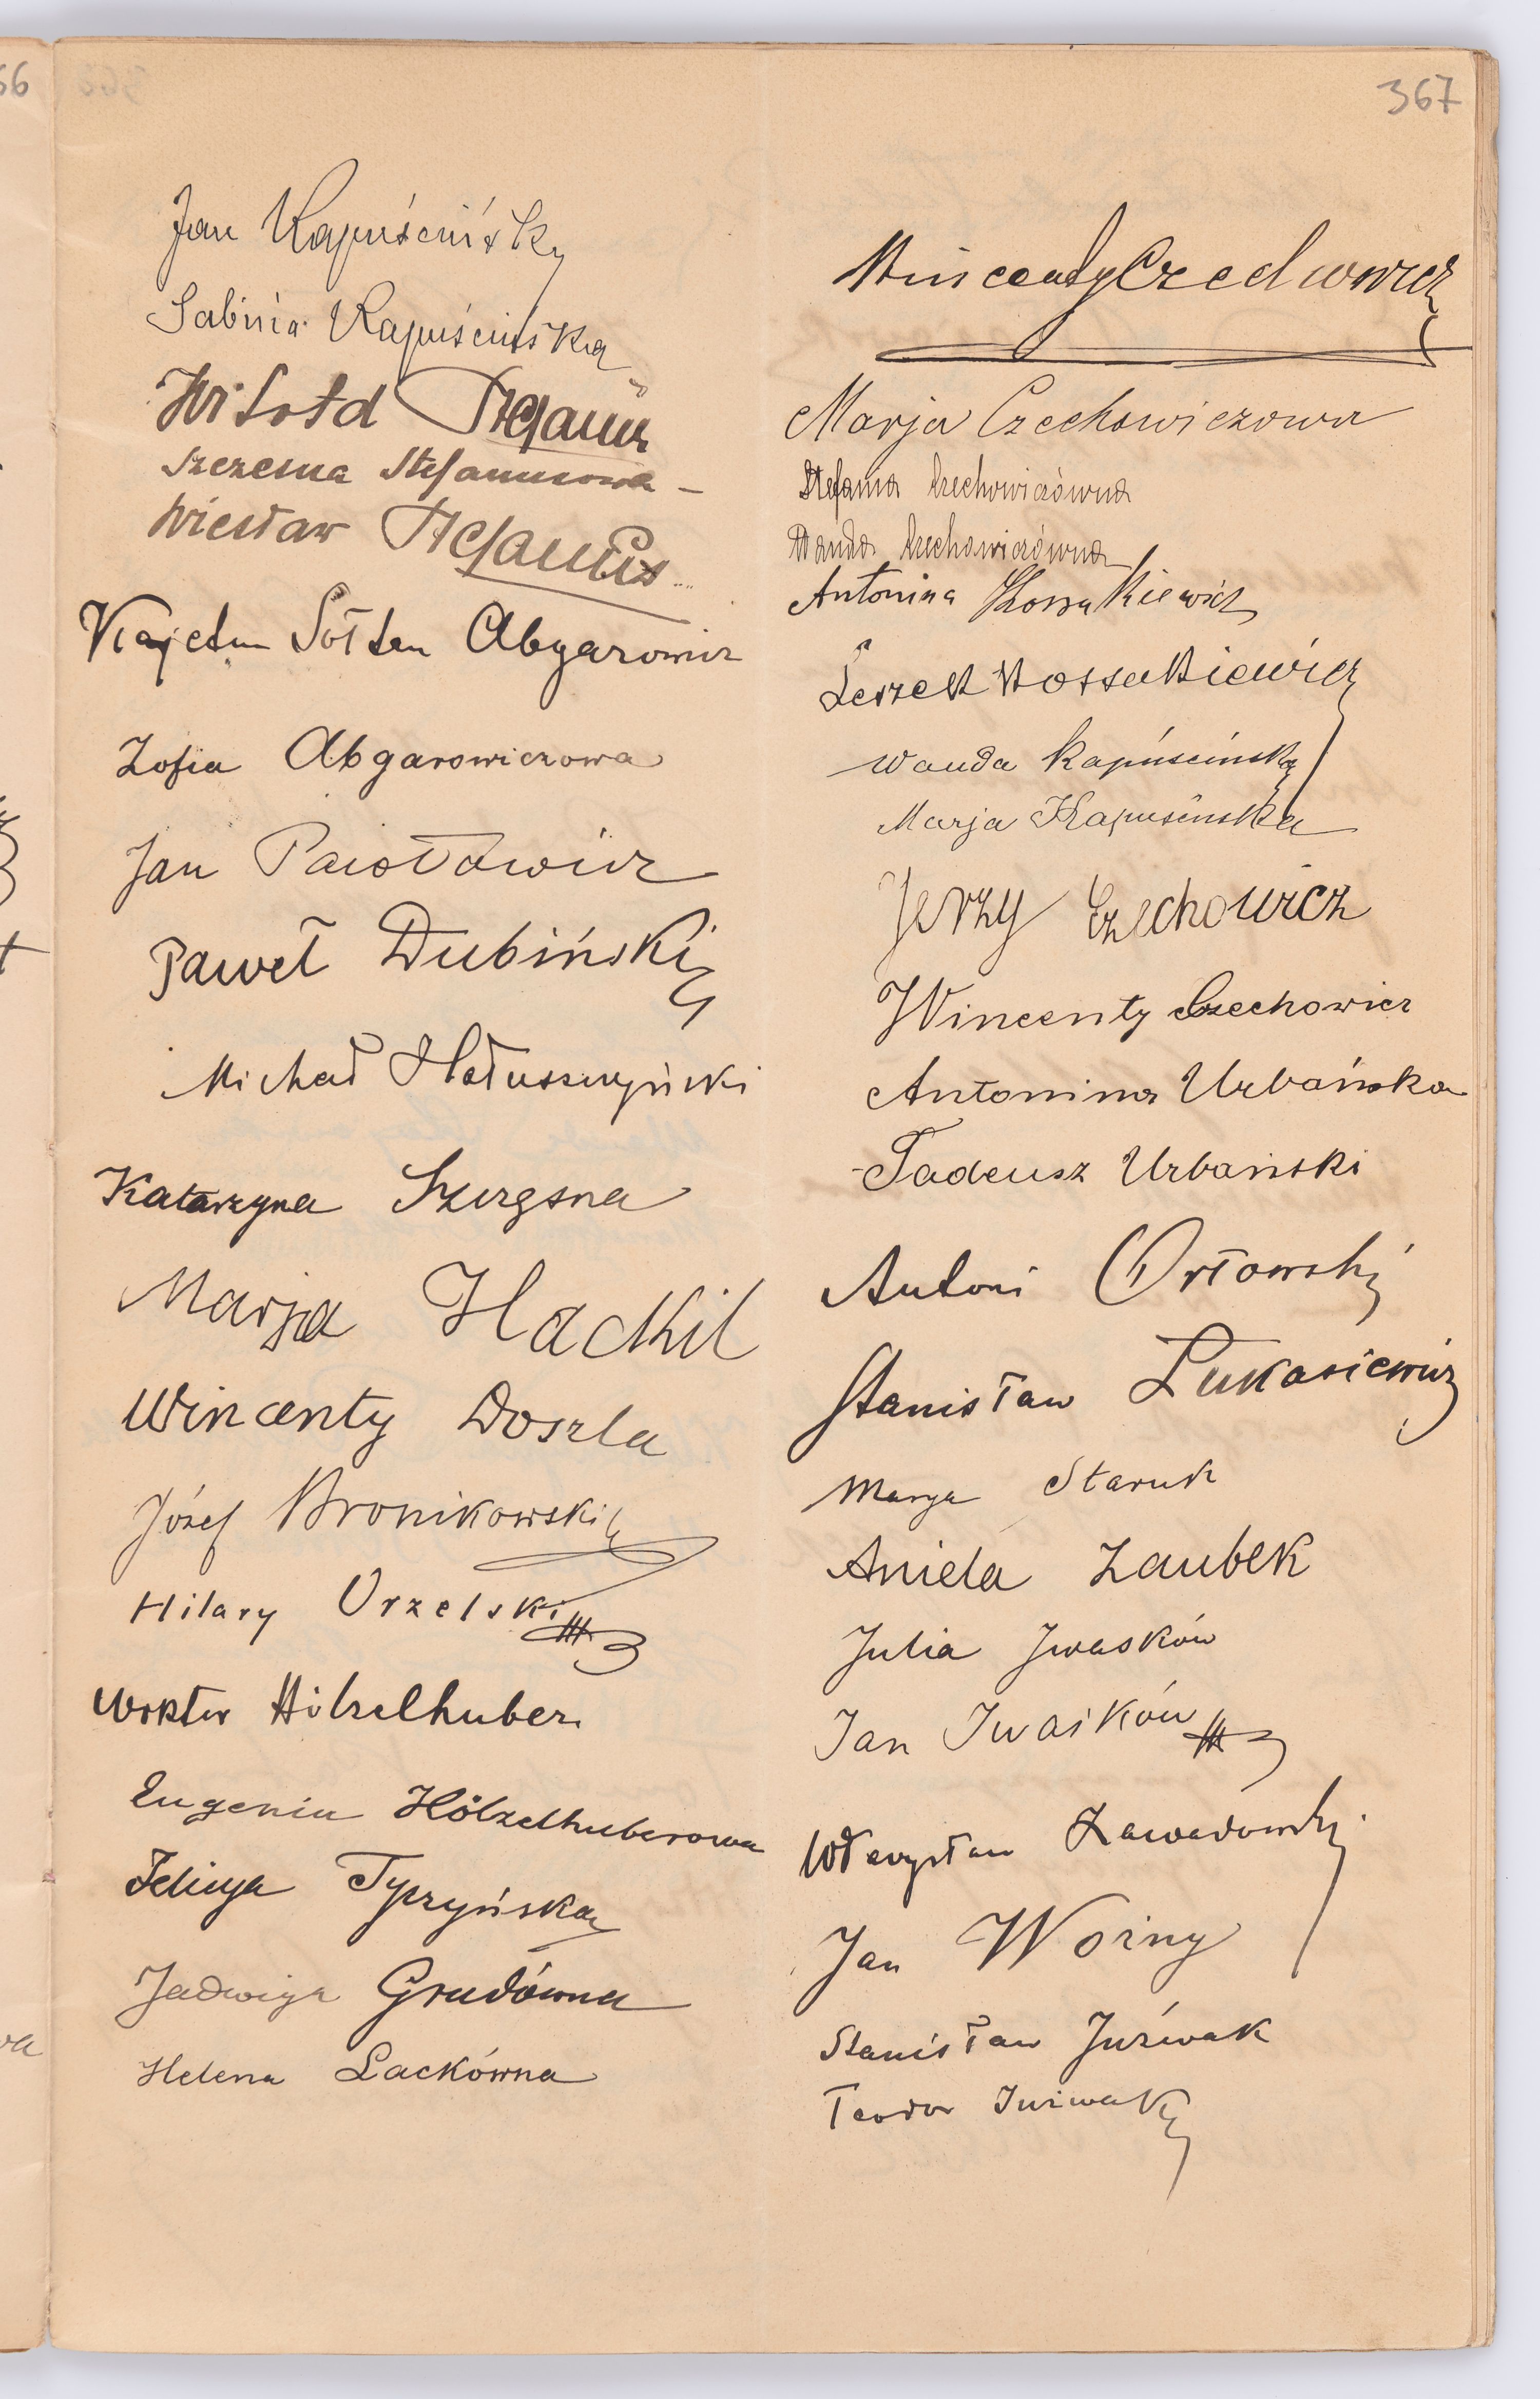 367
Jan Kapuściński
Sabina Kapuścińska
Witold Stefanus
Szczesna Stefanusowa
Wiesław Stefanus
Kajetan Sołtan Abgarowicz
Zofia Abgarowiczowa
Jan
Paweł Dubiński
Michał Hołuszyński
Katarzyna
Marja Hackil
Wincenty Doszla
Józef Bronikowski
Hilary Orzelski
Wiktor Hölzelhuber
Eugenia Hölzelhuberowa
Felicya Tyszyńska
Jadwiga Grudówna
Helena Lackówna
Wincenty Czechowicz
Marja Czechowiczowa
Stefania Czechowiczówna
Wanda Czechowiczówna
Antonina Kossakiewicz
Leszek Kossakiewicz
Wanda Kapuścińska
Marja Kapuścińska
Jerzy Czechowicz
Wincenty Czechowicz
Antonina Urbańska
Tadeusz Urbański
Antoni Orłowski
Stanisław Łukasiewicz
Marya Staruk
Aniela Zaubek
Julia Iwasków
Jan Iwaśków
Władysław Zawadowski
Jan Woźny
Stanisław Juźwak
Teodor Juźwak